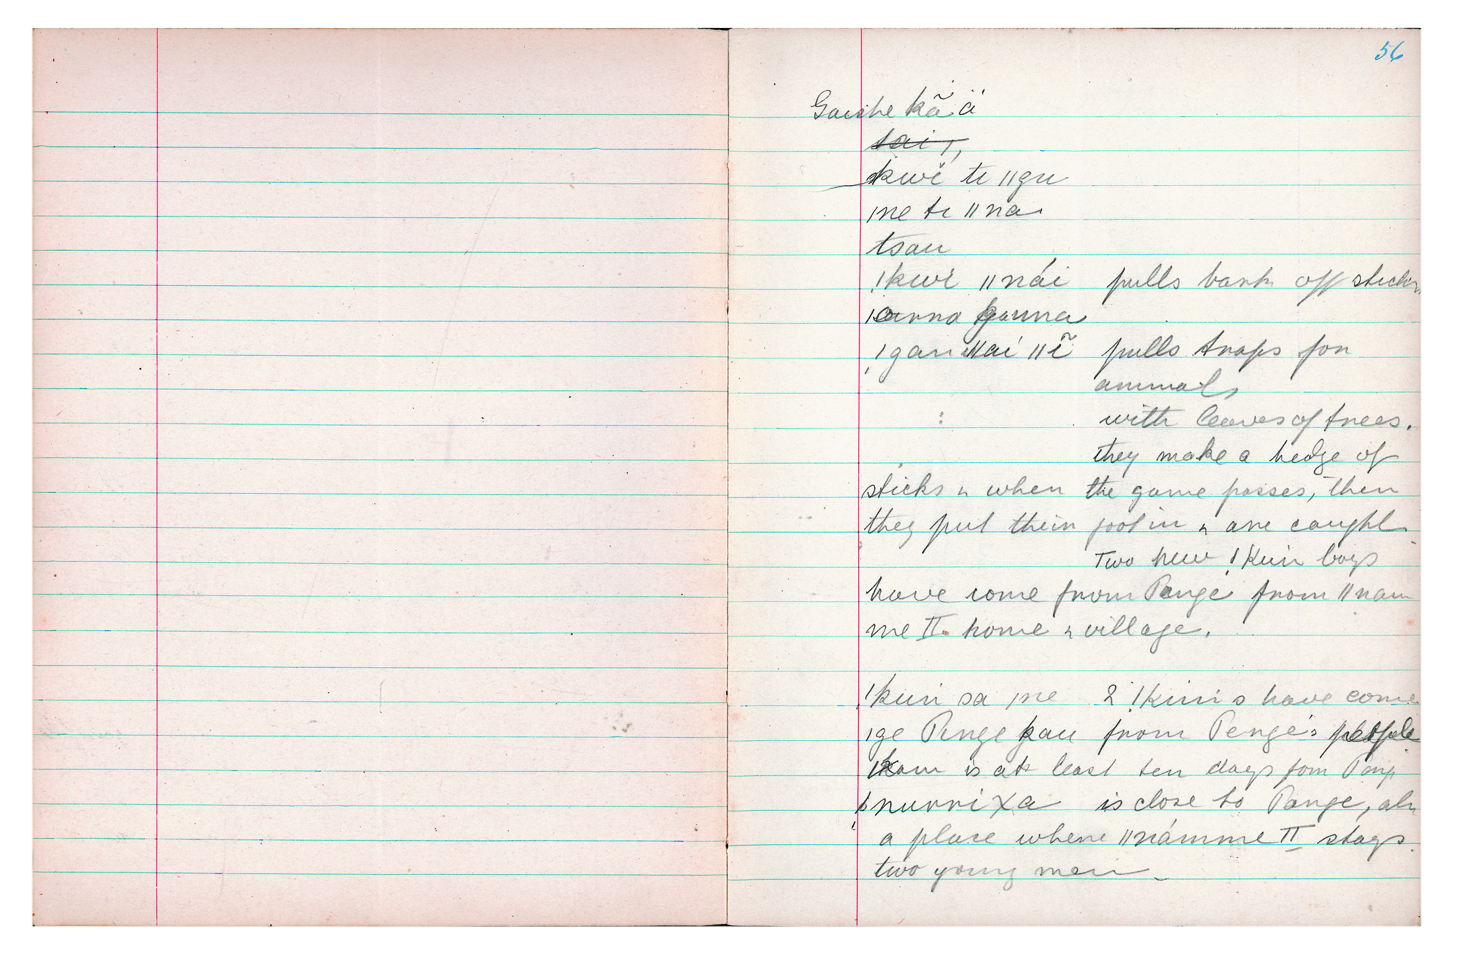 56
Gaishe kã ä
tai ǀ,
kwĕ ti ǁgu
ǀne ti ǁna
tsau
!kwĕ ǁnái pulls bark off sticks
ǀanna gauna
!gan ǁai ǁĩ pulls traps for
animals
with leaves of trees.
they make a hedge of
sticks & when the game passes, then
they put their foot in & are caught
Two new !Kun boys
have come from Pange from ǁnam
me II. home & village.
!kun sa ǀne 2 !Kun's have come
ǀge Penge kau from Penge's people
is at least ten days fom Pange
nurrixa is close to Pange, als
a place where ǁnámme II stays.
two young men